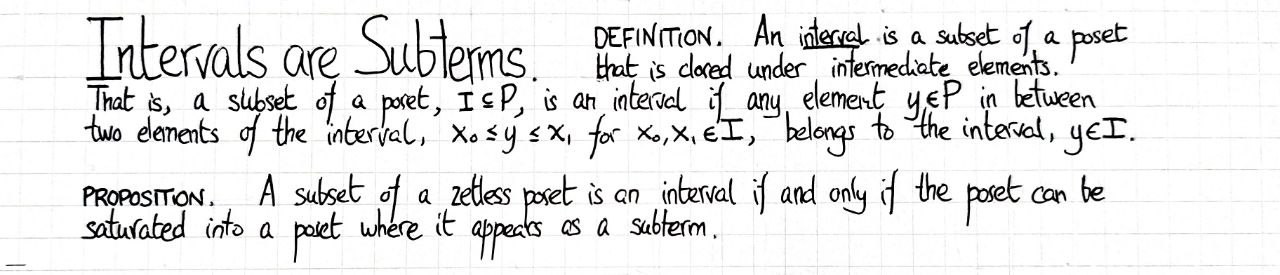 Intervals are Subterms.
DEFINITION. An interval is a subset of a poset
that is closed under intermediate elements.
That is, a subset of a poset, I ⊆ P, is an interval if any element y ∈ P in between
two elements of the interval, x₀ ≤ y ≤ x₁ for x₀, x₁ ∈ I, belongs to the interval, y ∈ I.
PROPOSITION. A subset of a zetless poset is an interval if and only if the poset can be
saturated into a poset where it appears as a subterm.